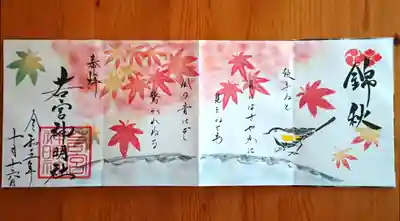 錦秋
秋来ぬと
目にはさやかに
見えねども
風の音にぞ
驚かれぬる
奉拝
若宮神明社
令和三年
十月十六日